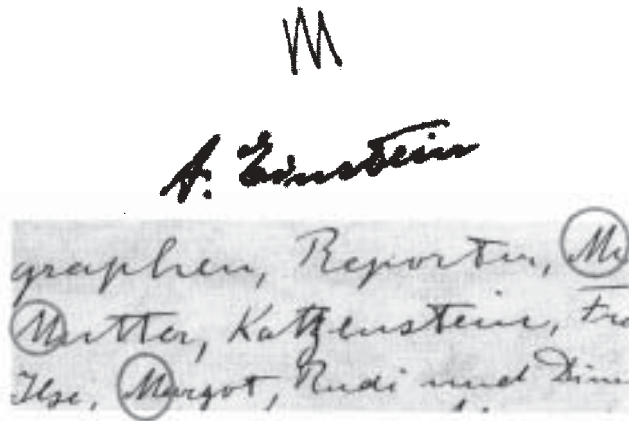 M
A. Einstein
graphen, Reporter,
Mutter, Katzenstein,
Ilse, Margot, Rudi und